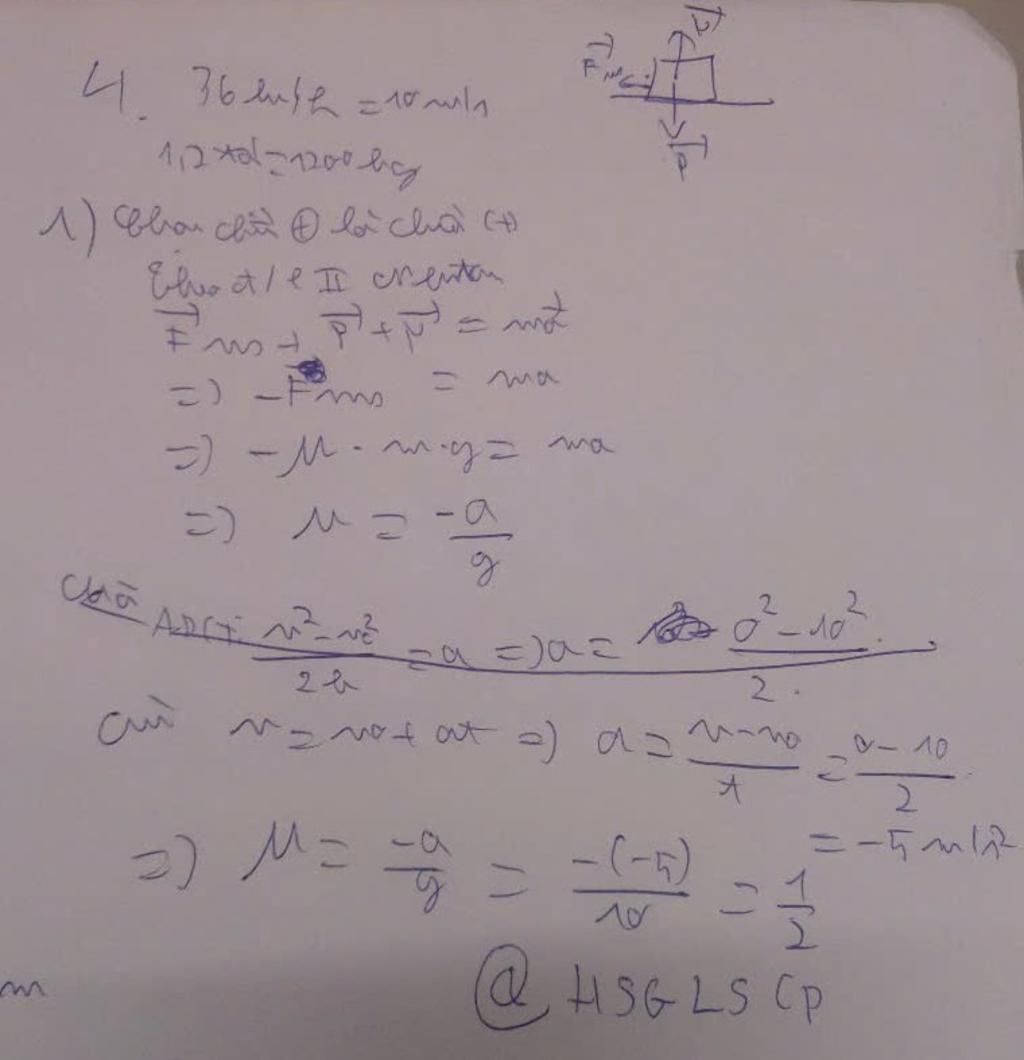 4. 36 km/h = 10 m/s
N
Fms
P
1,2 tấn = 1200 kg
1) Chọn chiều ⊕ là chiều (+)
Theo đ/l II Newton
Fms + P + N = ma
=> -Fms = ma
=> -μ . m.g = ma
=> μ = -a/g
ADCT: v² - v₀² / 2s = a => a = 0² - 10² / 2.
v = v₀ + at => a = v - v₀ / t = 0 - 10 / 2
= -5 m/s²
=> μ = -a/g = -(-5)/10 = 1/2
@ HSGLS Cp
m